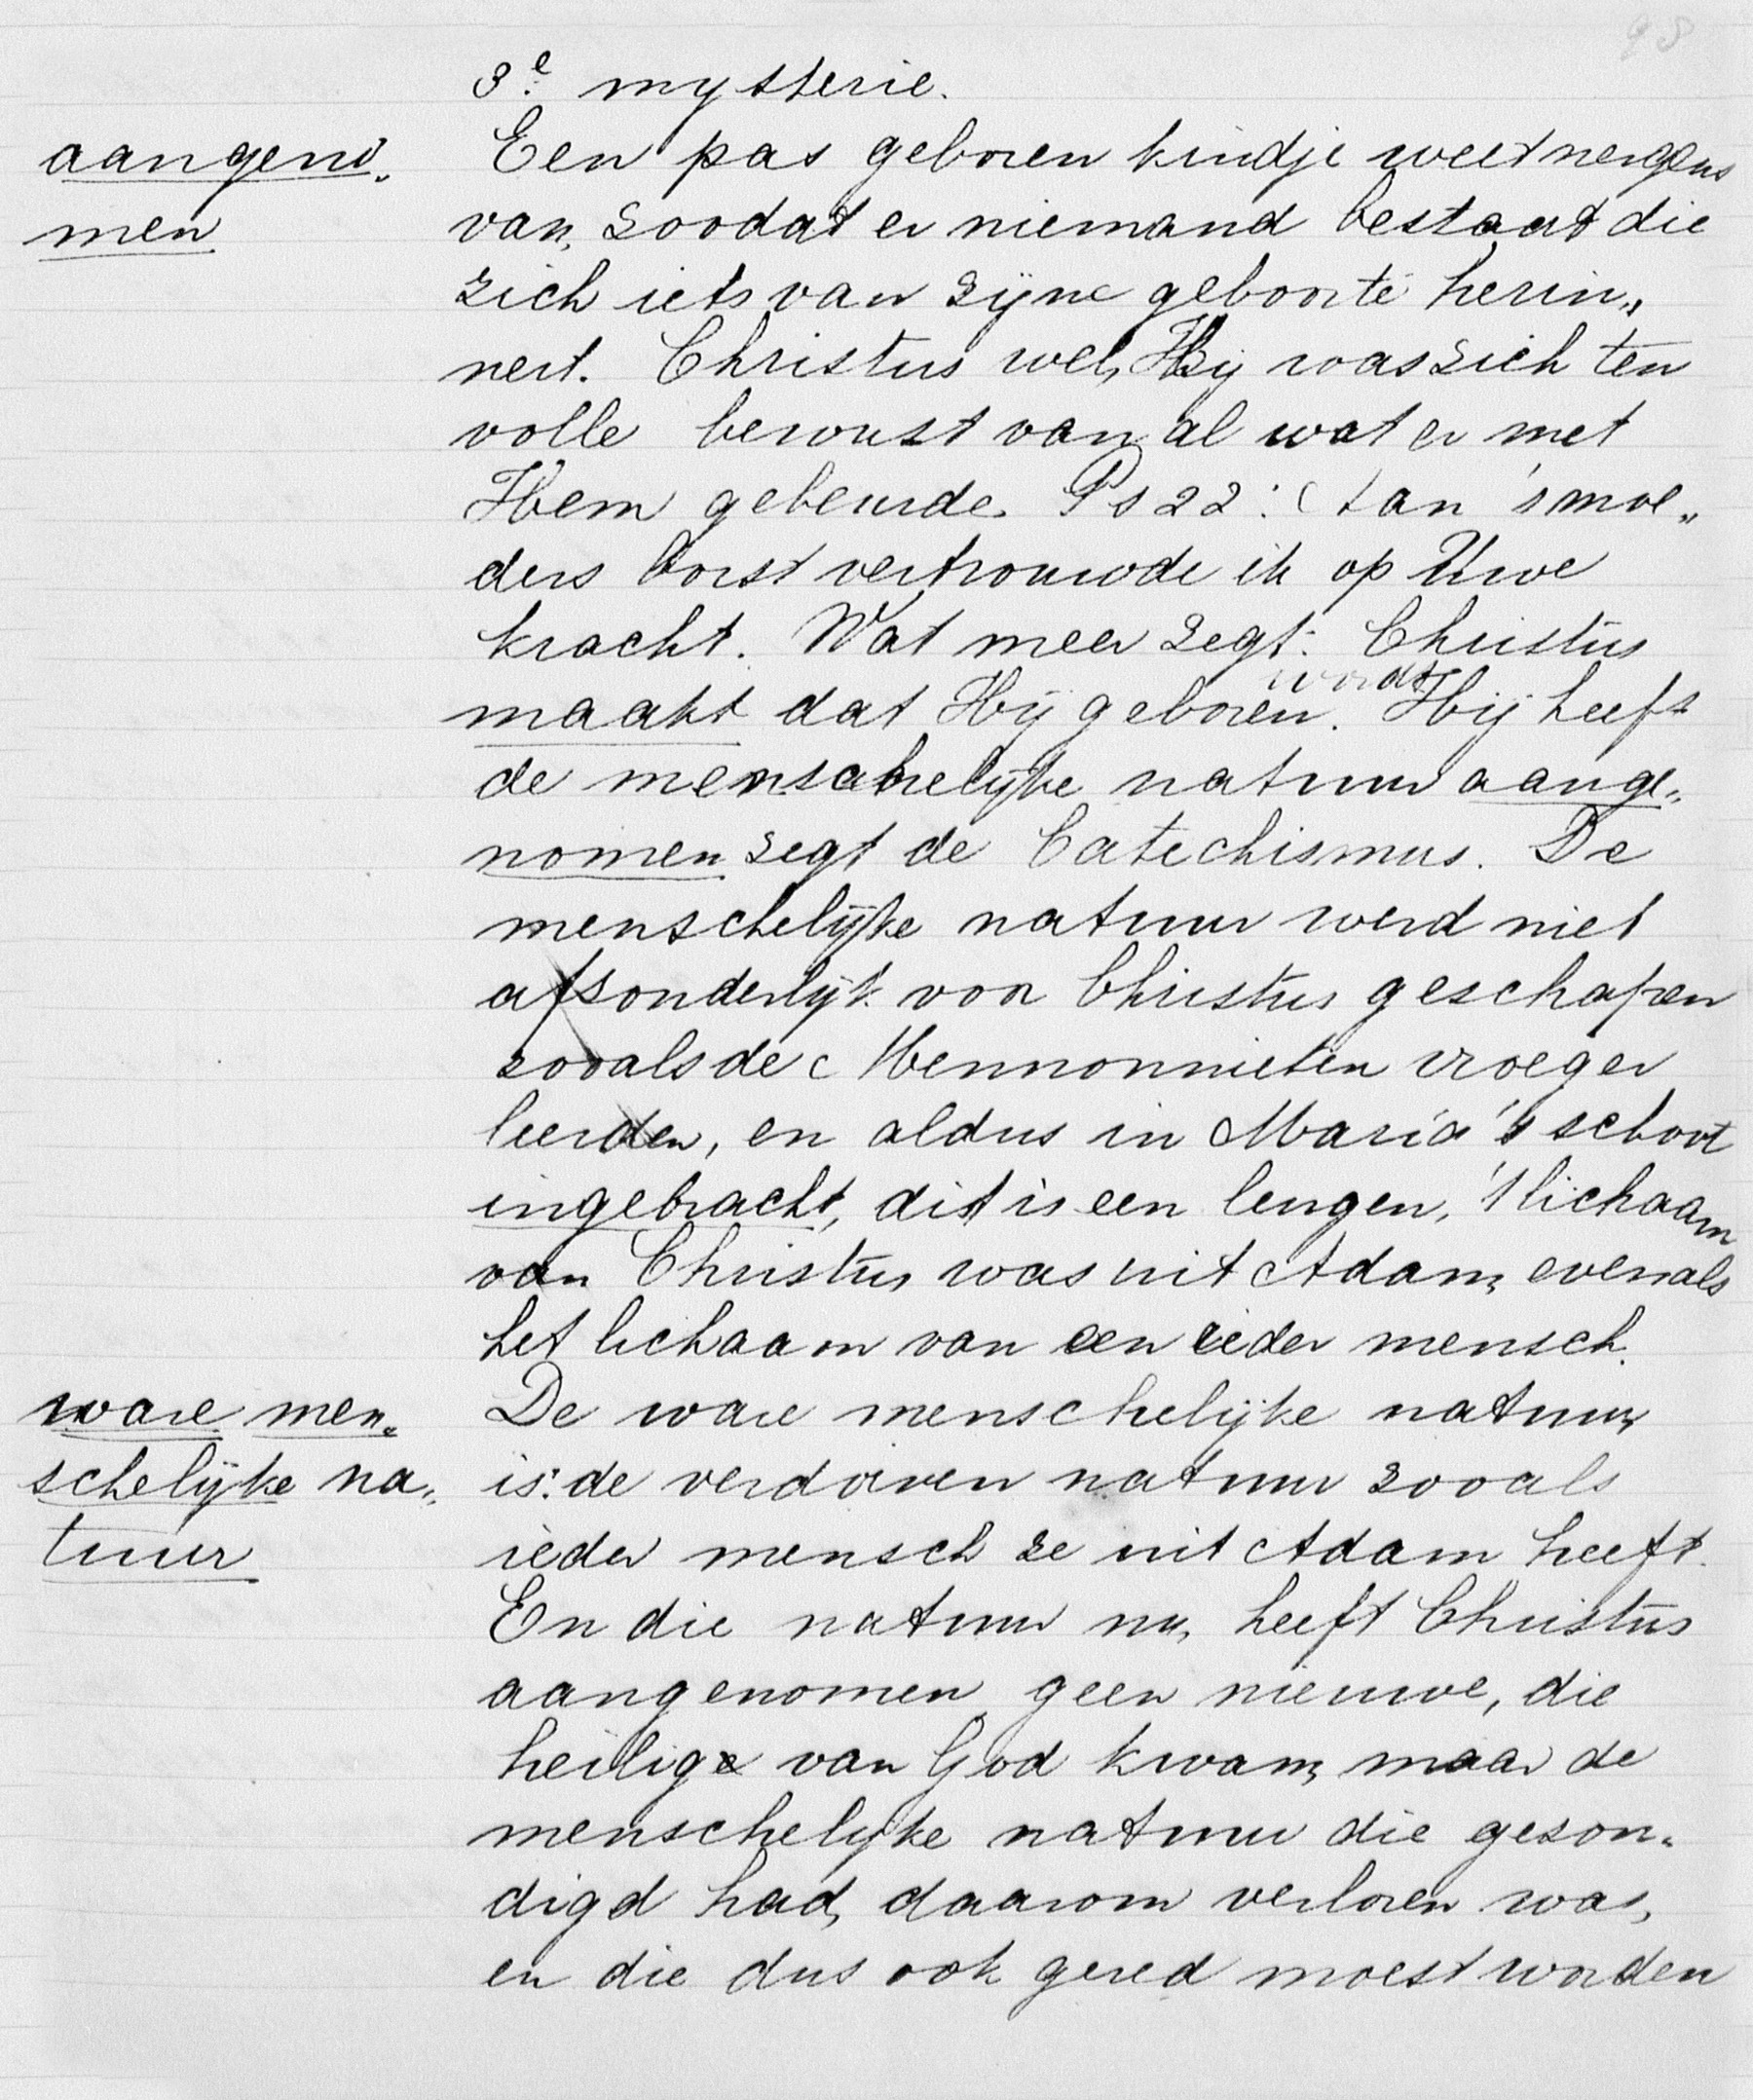 98
3e mysterie.
aangeno„
men
Een pas geboren kindje weet nergens
van, zoodat er niemand bestaat die
zich iets van zijne geboorte herin„
nert. Christus wel, Hij was zich ten
volle bewust van al wat er met
Hem gebeurde. Ps 22: Aan 's moe„
ders borst vertrouwde ik op Uwe
kracht. Wat meer zegt: Christus
maakt dat Hij geboren wordt. Hij heeft
de menschelijke natuur aange„
nomen zegt de Catechismus. De
menschelijke natuur werd niet
afzonderlijk voor Christus geschapen
zooals de Mennonnieten vroeger
leerden, en aldus in Maria's schoot
ingebracht, dit is een leugen, 't lichaam
van Christus was uit Adam, evenals
het lichaam van een ieder mensch.
ware men„
schelijke na„
tuur
De ware menschelijke natuur,
is: de verdorven natuur zooals
ieder mensch ze uit Adam heeft.
En die natuur nu, heeft Christus
aangenomen, geen nieuwe, die
heilig van God kwam, maar de
menschelijke natuur die gezon„
digd had, daarom verloren was,
en die dus ook gered moest worden